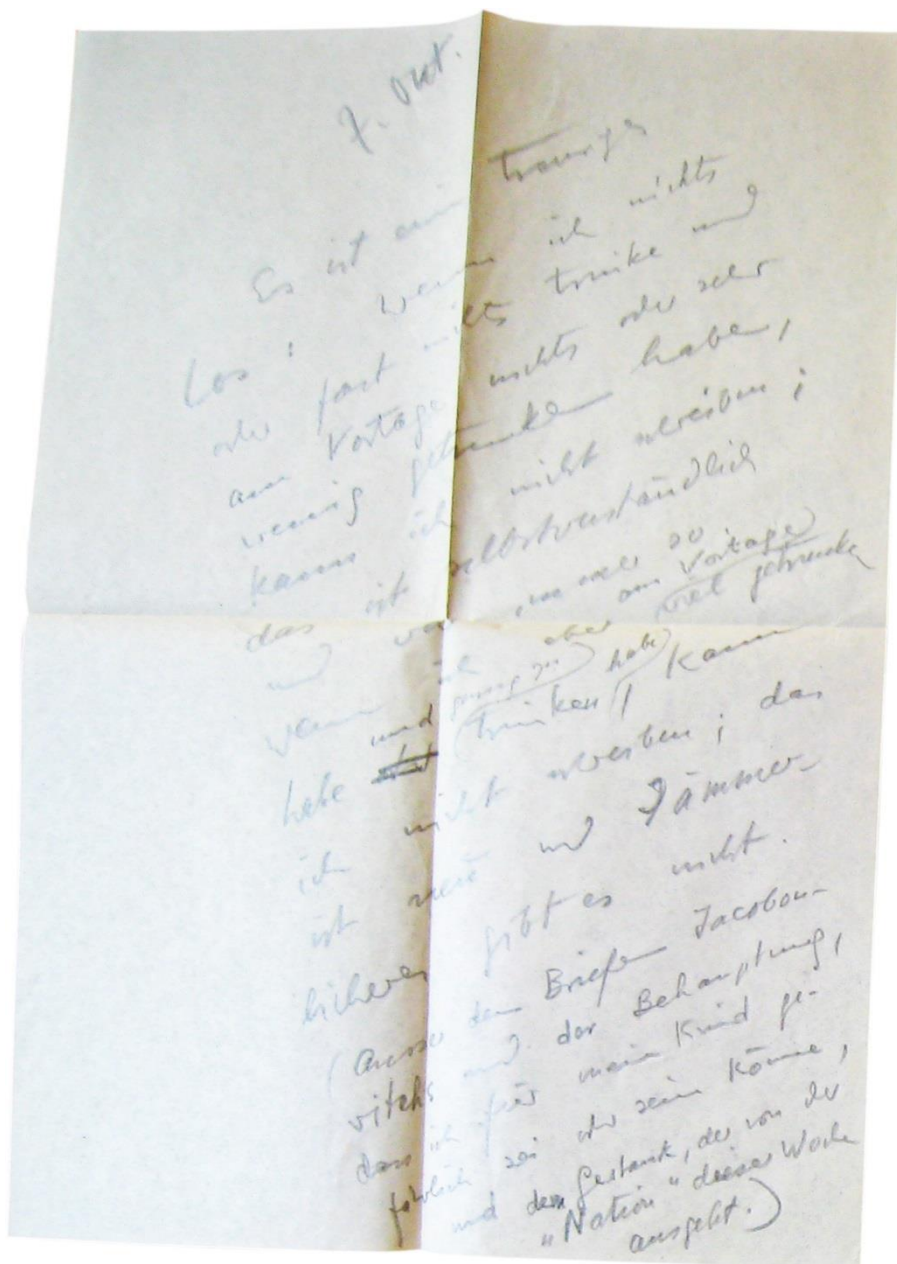 7. Okt.
Es ist ein trauriges
Los: wenn ich nichts
oder fast nichts trinke und
am Vortage nichts oder sehr
wenig getrunken haben,
kann ich nicht schreiben;
das ist selbstverständlich
und war immer so
wenn ich aber am Vortage
viel getrunken
habe und genug zu trinken habe, kann
ich nicht schreiben; das
ist neu und Jämmer-
licheres gibt es nicht.
(Ausser den Briefen Jacobow-
vitchs und der Behauptung,
dass ich für mein Kind ge-
fährlich sei oder sein könne,
und dem Gestank, der von der
"Nation" dieser Woche
ausgeht.)